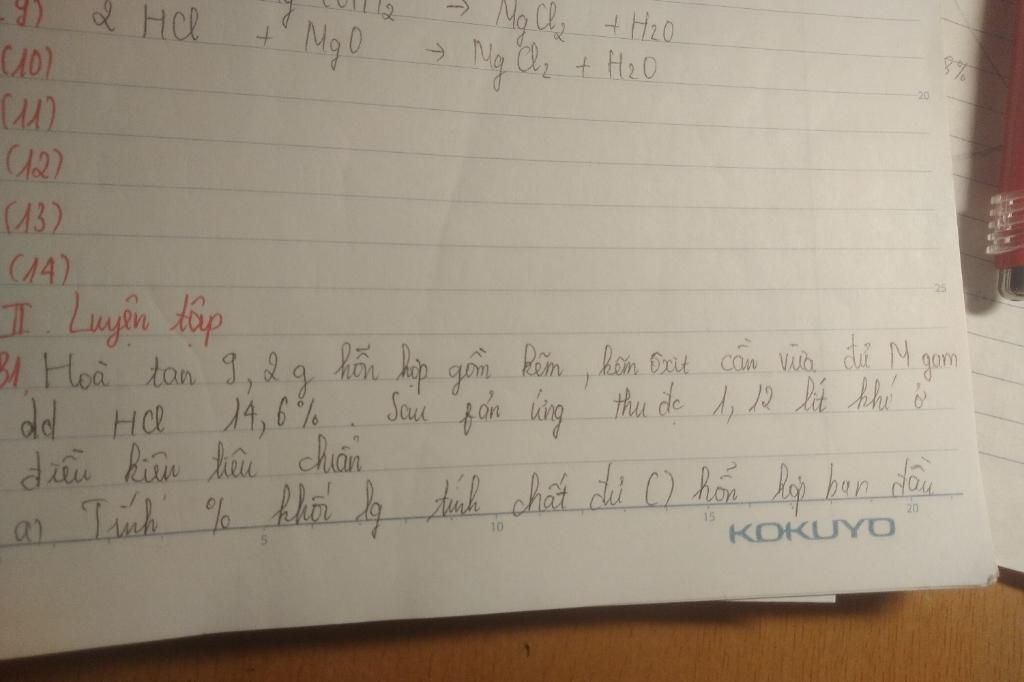 9) (OH)2 → MgCl2 + H2O
2 HCl + MgO → MgCl2 + H2O
(10)
20
(11)
(12)
(13)
(14)
25
II. Luyện tập
B1. Hoà tan 9,2g hỗn hợp gồm kẽm, kẽm oxit cần vừa đủ M gam
dd HCl 14,6%. Sau fản ứng thu đc 1,12 lít khí ở
điều kiện tiêu chuẩn
a) Tính % khối lg tính chất đủ C) hỗn hợp ban đầu
5 10 15 20
KOKUYO